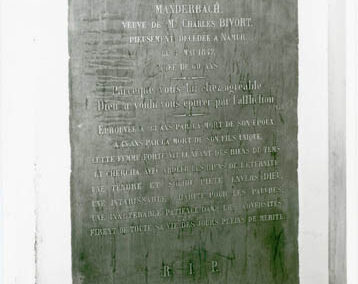 MANDERBACH,
VEUVE DE Mr CHARLES BIVORT,
PIEUSEMENT DÉCÉDÉE A NAMUR
MAI 1847,
DE 60 ANS
Parceque vous lui étiez agréable
Dieu a voulu vous éprouver par l'affliction
ÉPROUVÉE A 23 ANS PAR LA MORT DE SON ÉPOUX
A 45 ANS PAR LA MORT DE SON FILS UNIQUE
CETTE FEMME FORTE SE DÉTACHANT DES BIENS DU TEMS
ET CHERCHA AVEC ARDEUR LES BIENS DE L'ÉTERNITÉ
UNE TENDRE ET SOLIDE PIÉTÉ ENVERS DIEU,
UNE INTARISSABLE CHARITÉ POUR LES PAUVRES,
UNE INALTÉRABLE PATIENCE DANS LES ADVERSITÉS
FIRENT DE TOUTE SA VIE DES JOURS PLEINS DE MÉRITE
R I P